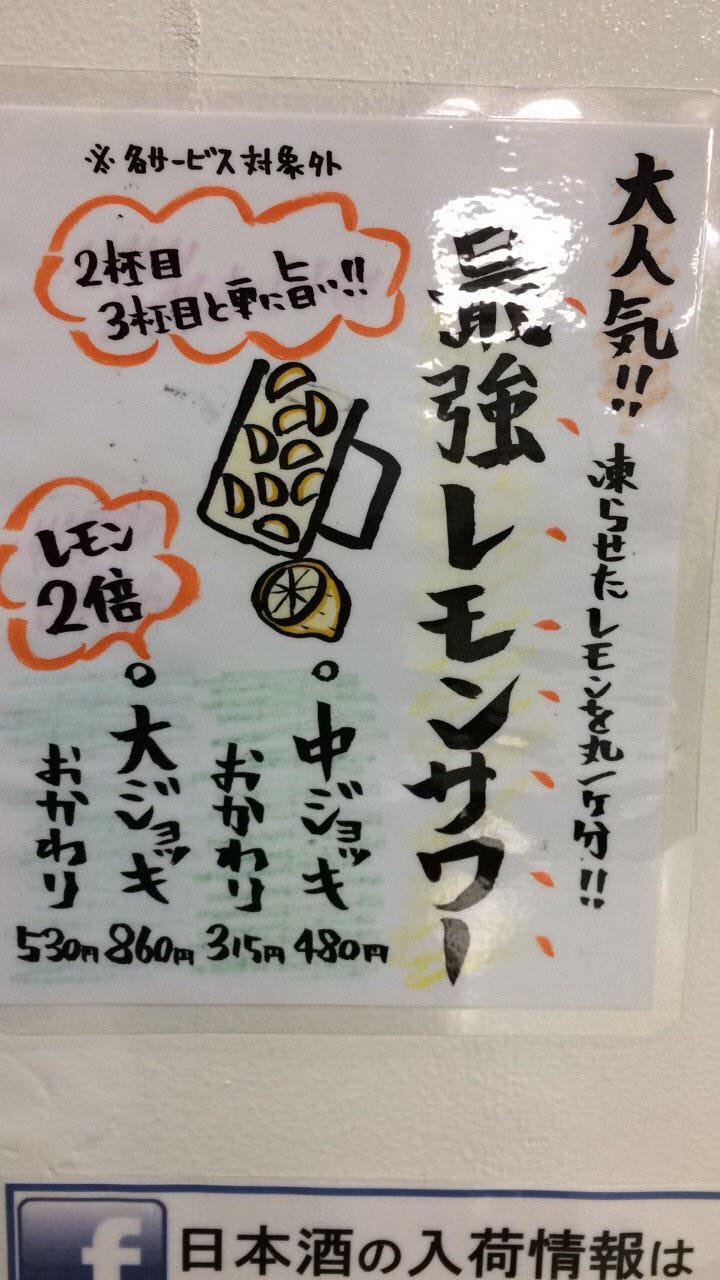 大人気!!
凍らせたレモンを丸一ケ分!!
最強レモンサワー
※各サービス対象外
2杯目
3杯目と更に旨い!!
○中ジョッキ 480円
おかわり 315円
レモン
2倍
○大ジョッキ 860円
おかわり 530円
f 日本酒の入荷情報は